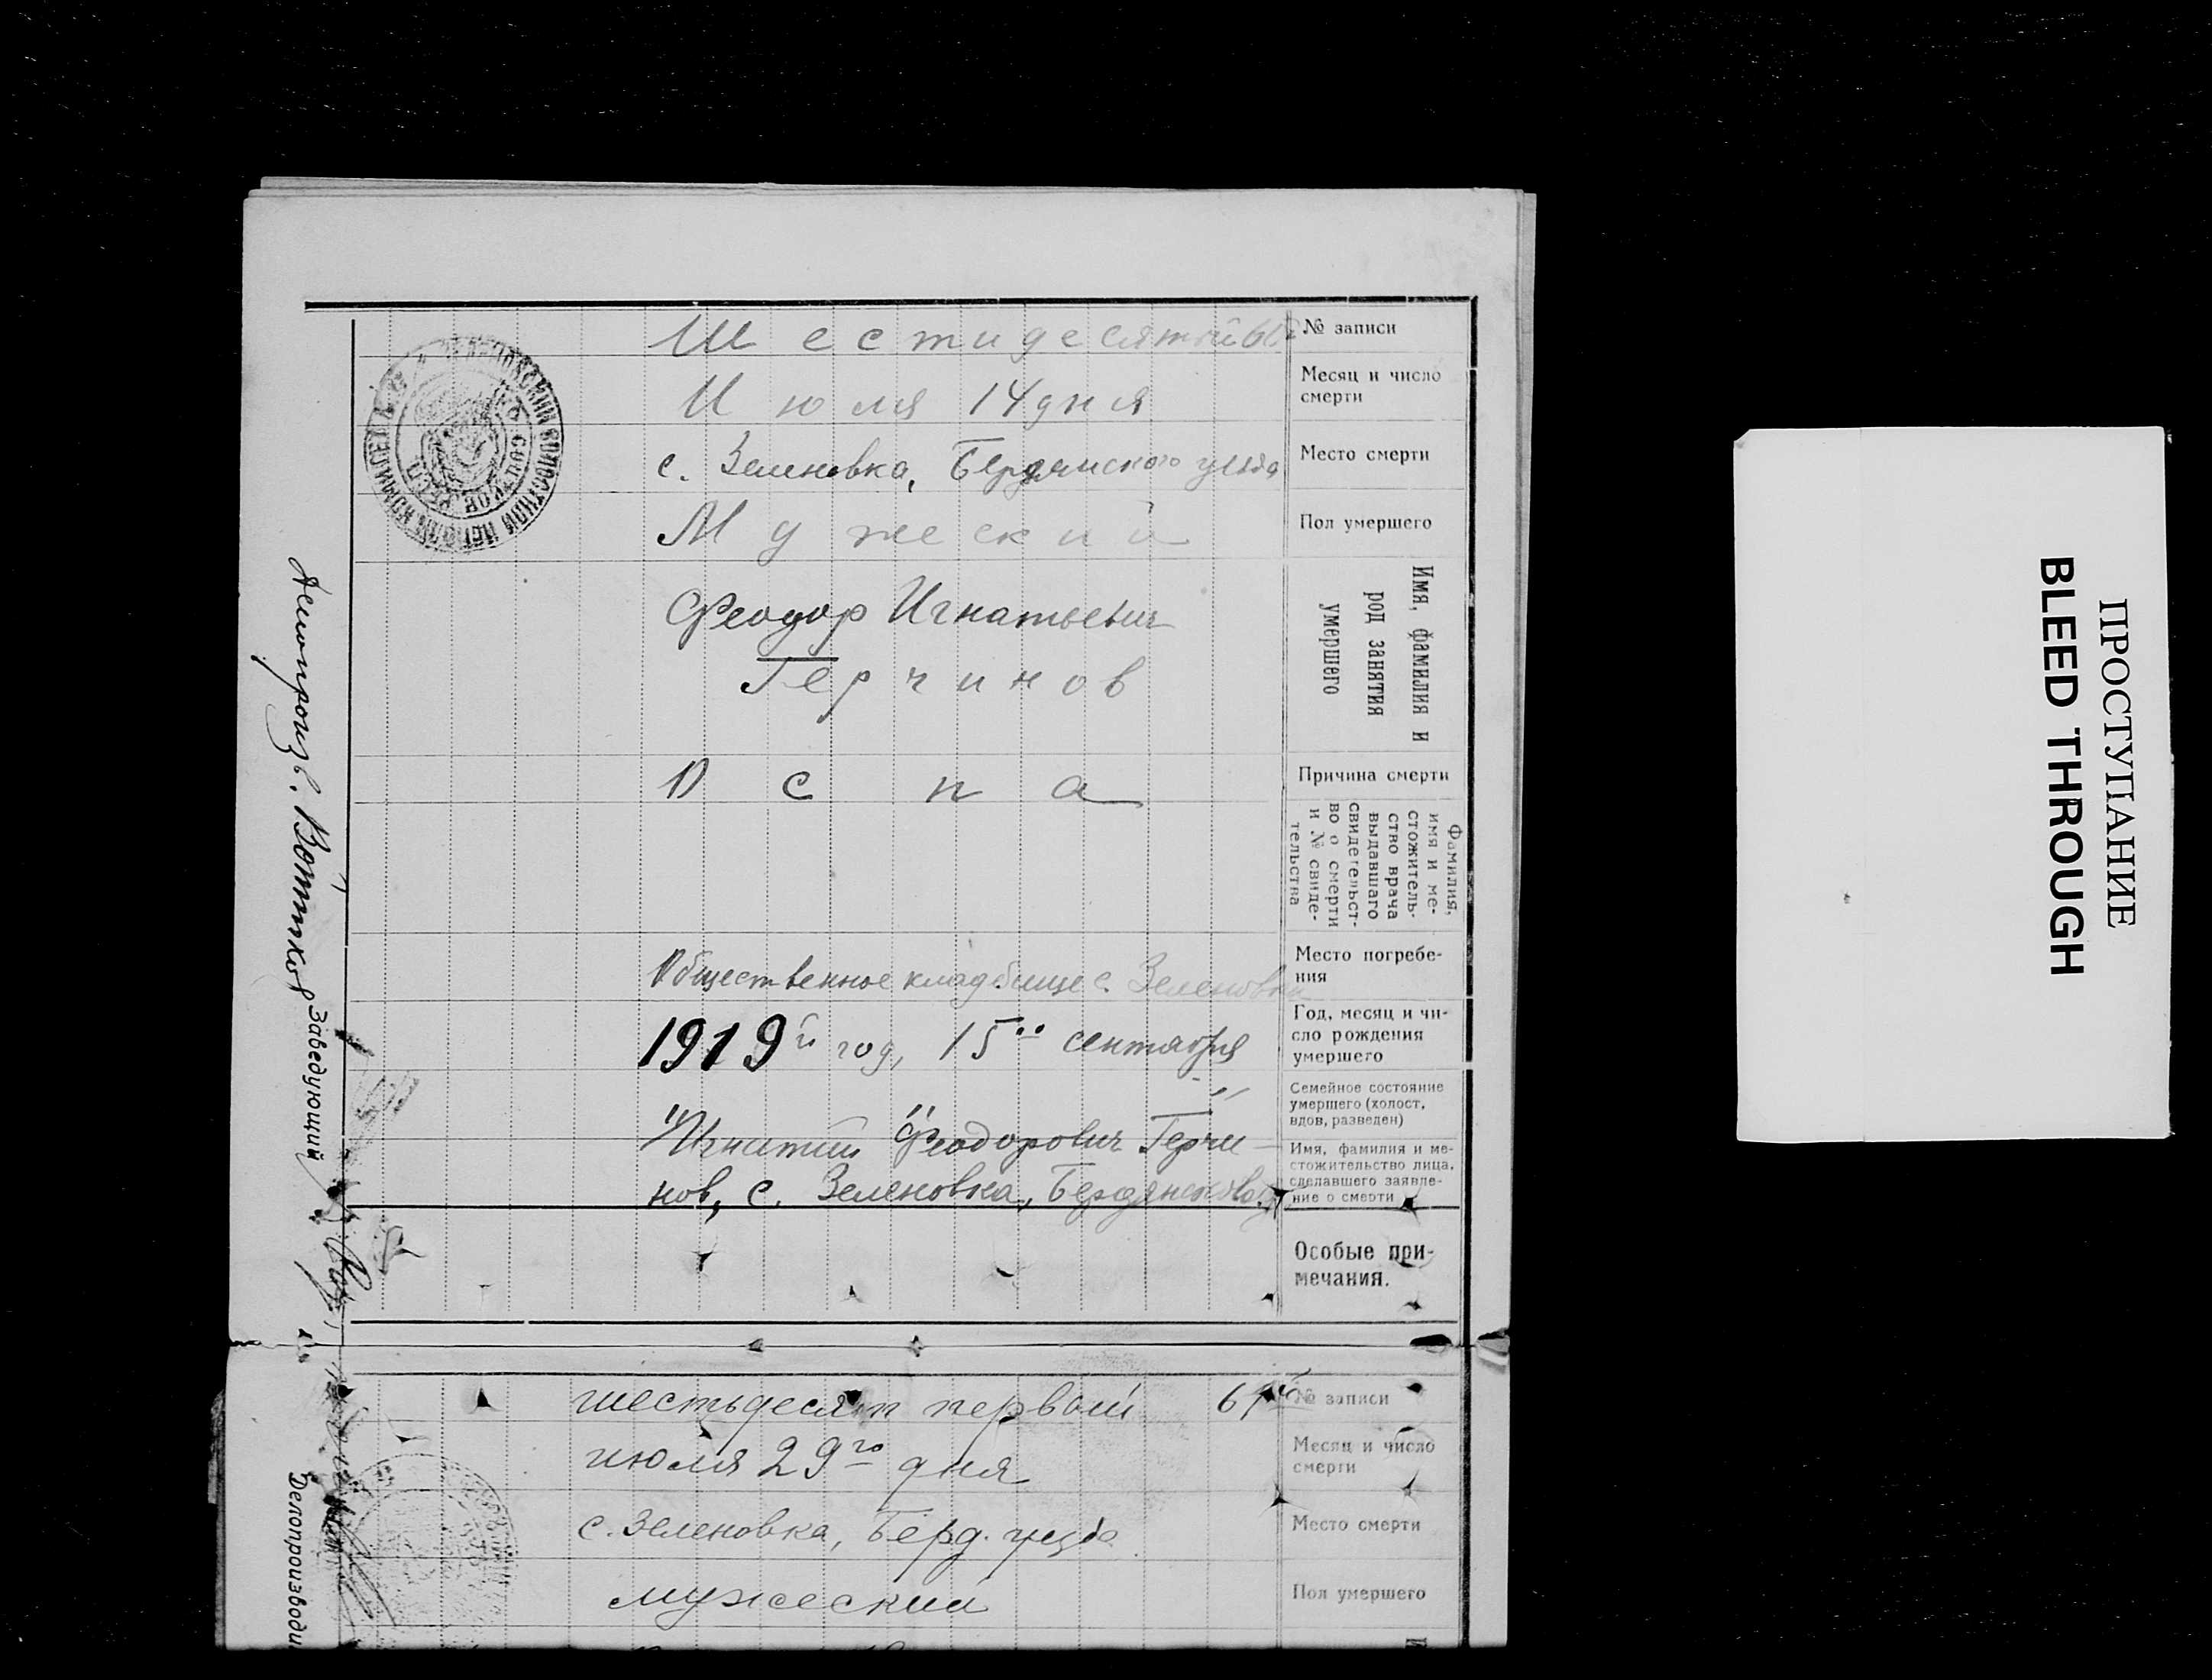 № записи
Шестидесятый 60й
Месяц и число
смерти
Июля 14 дня
Место смерти
с. Зеленовка, Бердянского уезда
Пол умершего
Мужеский
Имя, фамилия и
род занятия
умершего
Феодор Игнатьевич
Герчинов
Причина смерти
Оспа
Фамилия,
имя и ме-
стожитель-
ство врача
выдавшаго
свидетельст-
во о смерти
и № свиде-
тельства
Место погребе-
ния
Общественное кладбище с. Зеленовки
Год, месяц и чи-
сло рождения
умершего
1919й год, 15го сентября
Семейное состояние
умершего (холост,
вдов, разведен)
Имя, фамилия и ме-
стожительство лица,
сделавшего заявле-
ние о смерти
Игнатий Феодорович Герчи-
нов, с. Зеленовка, Бердянского
Особые при-
мечания.
Заведующий
Делопроизв.
№ записи
шестьдесят первый 61й
Месяц и число
смерти
июля 29го дня
Место смерти
с. Зеленовка, Берд. уезда
Пол умершего
мужеский
Делопроизводи
ПРОСТУПАНИЕ
BLEED THROUGH